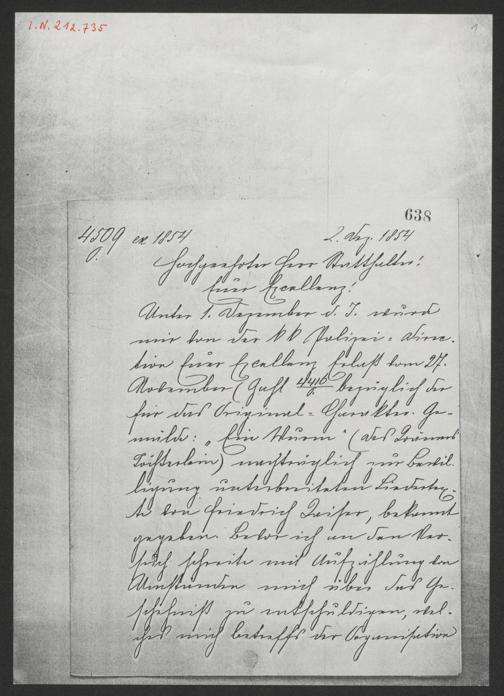 I.N. 212.735
1
638
4509 ex 1854
2. Dez. 1854
Hochgeehrter Herr Statthalter!
Euer Excellenz!
Unter 1. Dezember d. J. wurde
mir von der k k Polizei-Direc-
tion Euer Excellenz Erlaß vom 27.
November (Zahl 4416 bezüglich der
für das Original-Charakter-Ge-
mälde: „Ein Wurm“ (des
Töchterlein) nachträglich zur Bewil-
ligung unterbreiteten Liedertex-
te von Friedrich Kaiser, bekannt
gegeben. Bevor ich an den Ver-
such schreite mit Aufzählung von
Umständen mich über das Ge-
schehniß zu entschuldigen, wel-
ches mich betreffs der Organisation